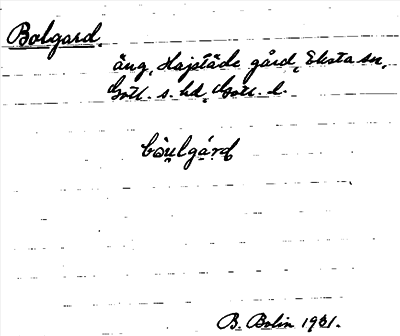 Bolgard.
äng, Hajstäde gård, Eksta sn,
Gotl. s. hd, Gotl. l.
bòulgárd
B. Bolin 1931.